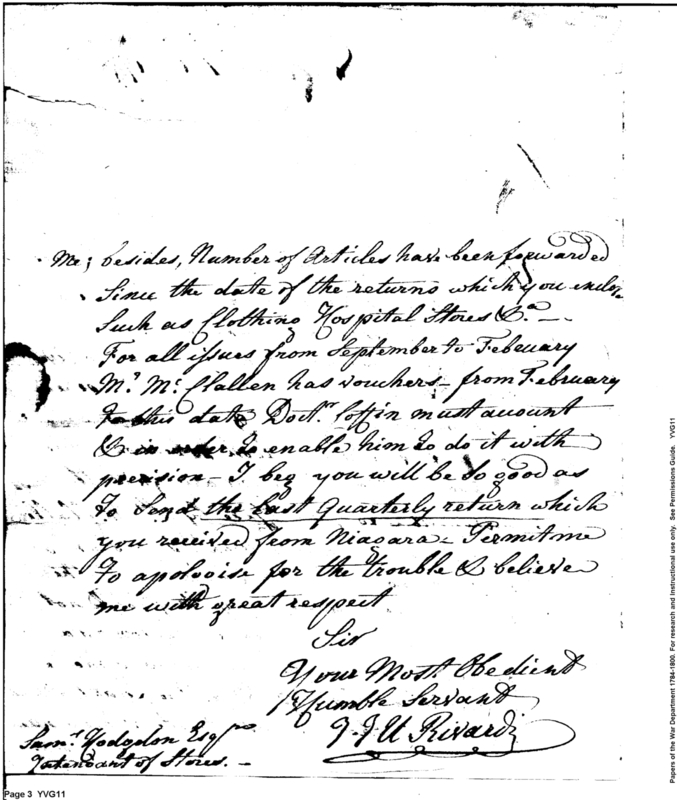 me; besides, Number of Articles have been forwarded
Since the date of the returns which you enclose
Such as Clothing Hospital Stores &.a —
For all issues from September to February
Mr. Mc. Clallen has vouchers — from February
to this date Doct.r Coffin must account
& in order to enable him to do it with
precision — I beg you will be so good as
to Send the last Quarterly return which
you received from Niagara — Permit me
to apologise for the trouble & believe
me with great respect
Sir
Your Most Obedient
Humble Servant
J J U Rivardi
Sam.l Hodgdon Esqr
Intendant of Stores. —
Page 3 YVG11
Papers of the War Department 1784-1800. For research and Instructional use only. See Permissions Guide. YVG11